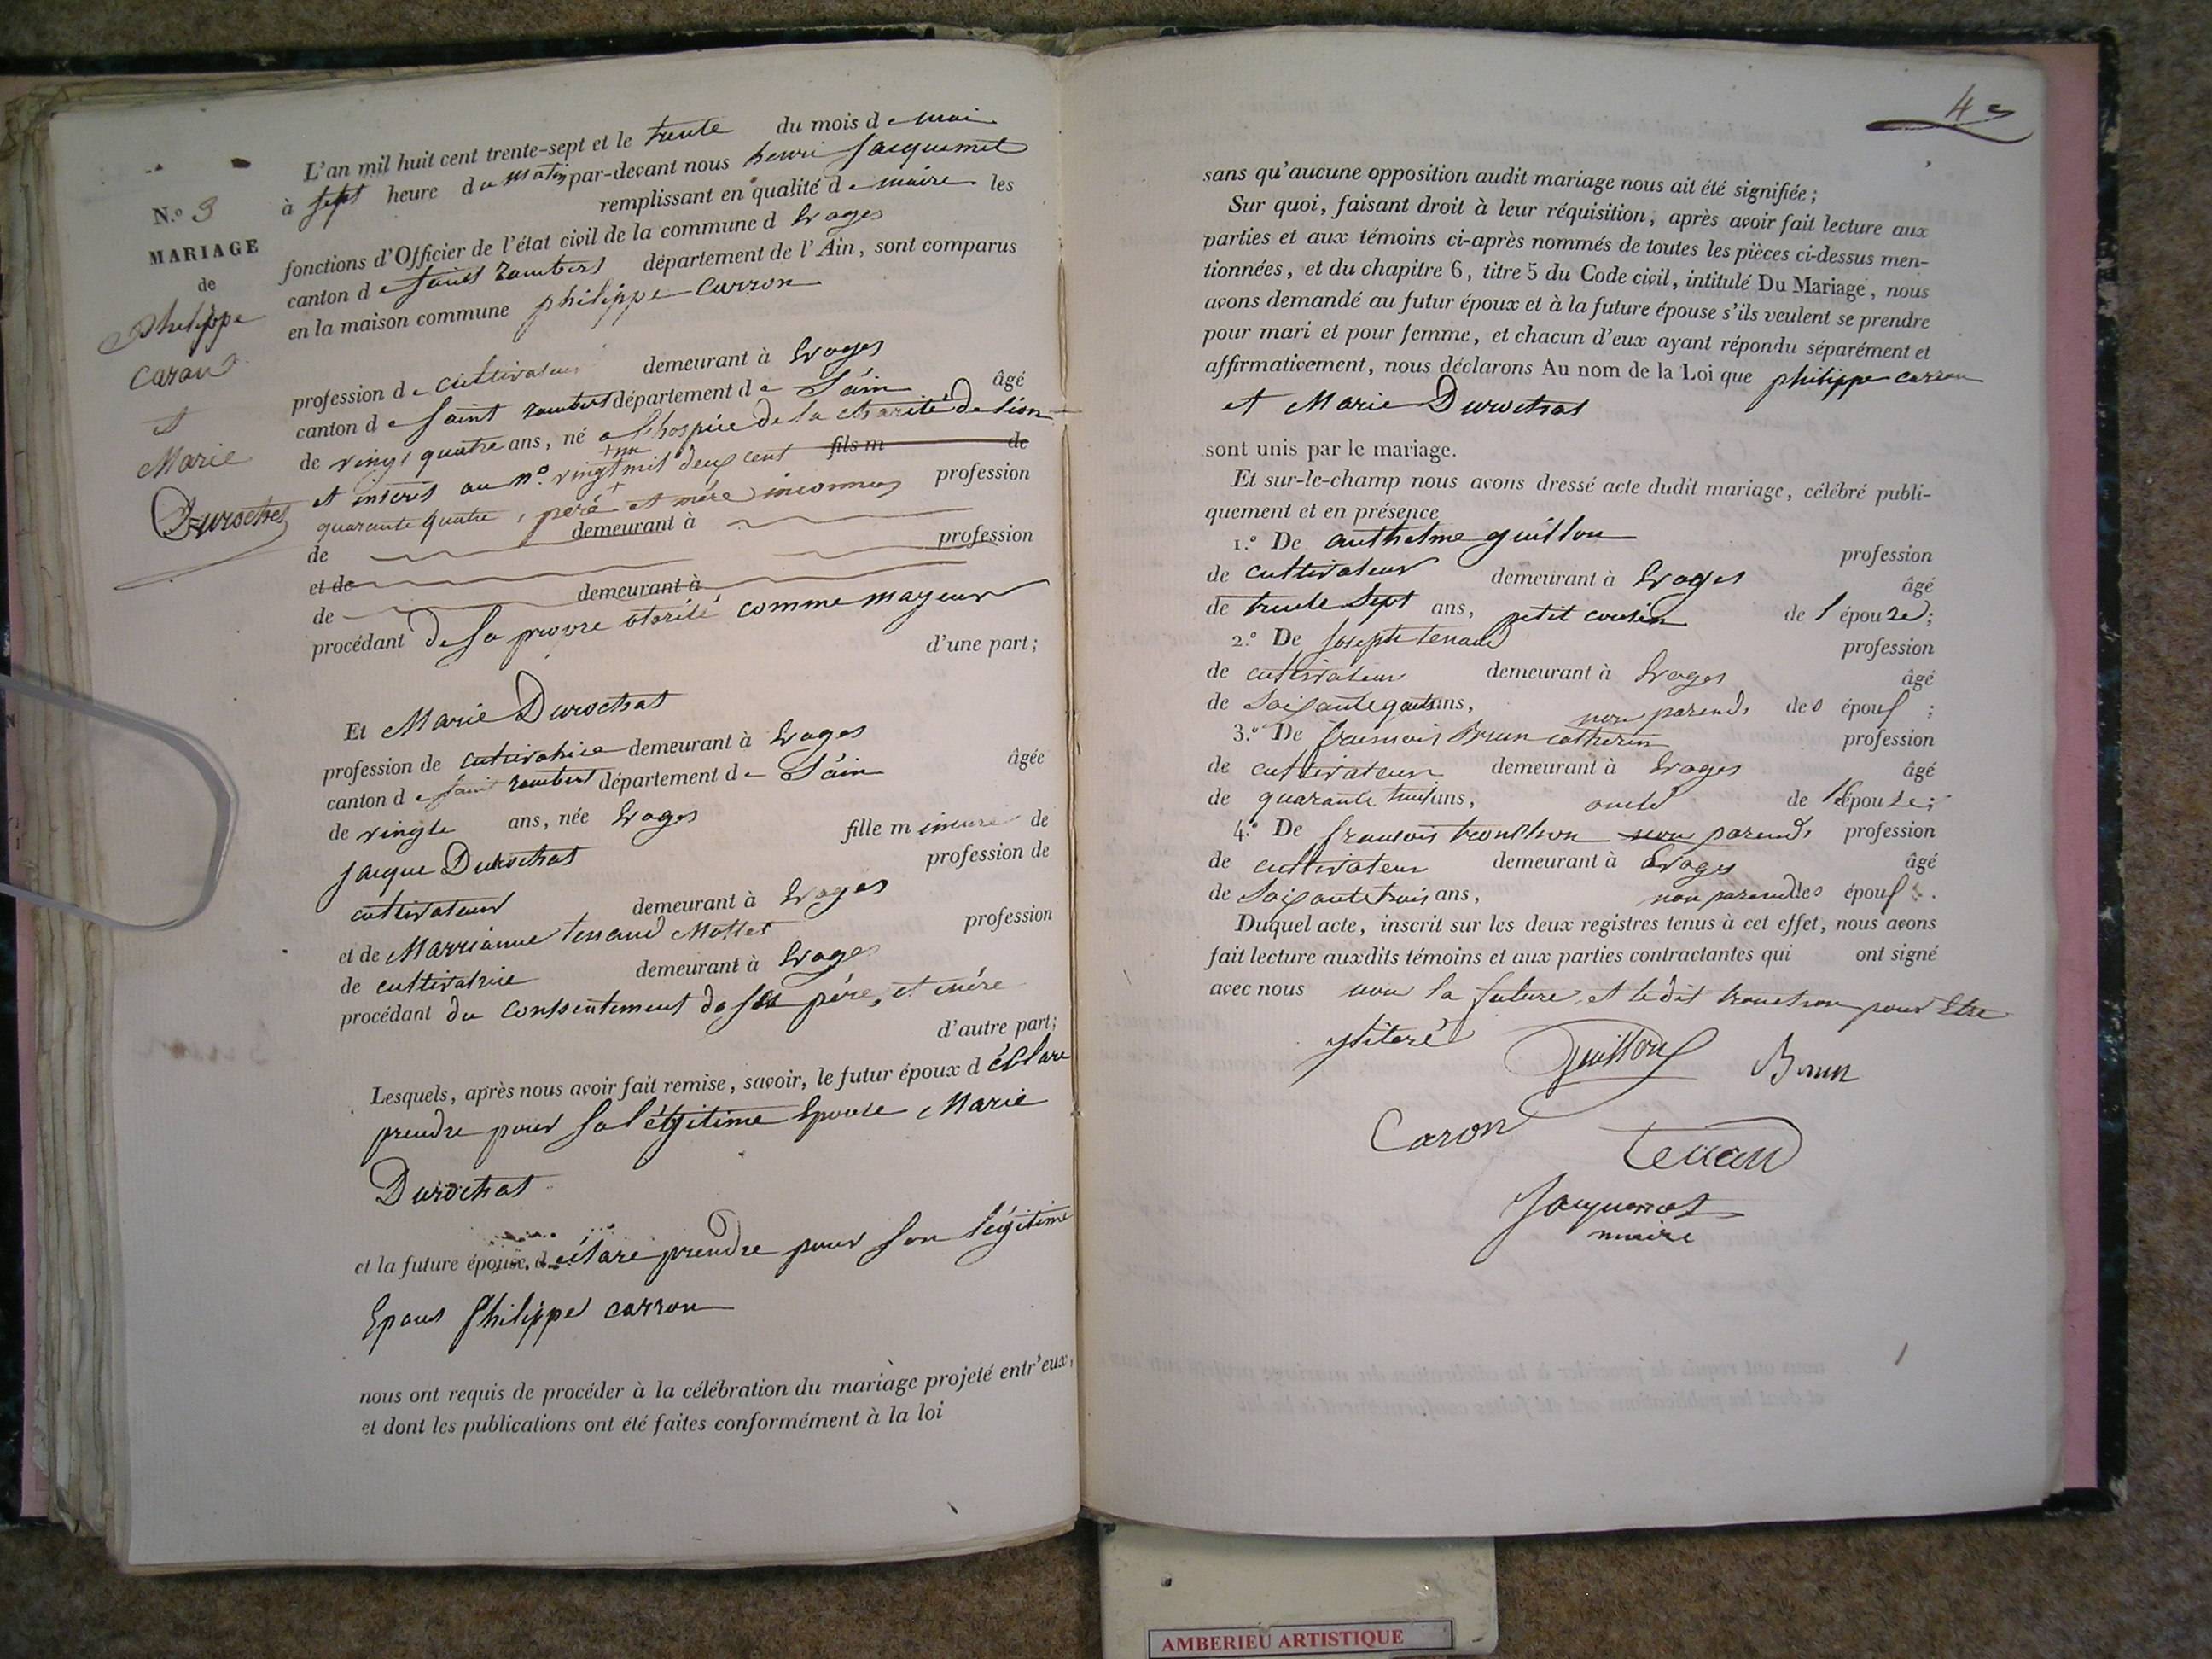 L'an mil huit cent trente-sept et le trente du mois de mai
à sept heure du matin par-devant nous henri Jacquemet
remplissant en qualité de maire les
fonctions d'Officier de l'état civil de la commune d Evoges
canton de Saint rambert département de l'Ain, sont comparus
en la maison commune philippe Carron
N.º 3
MARIAGE
de
philippe
Caron
et
Marie
Durochat
profession de cultivateur demeurant à Evoges
canton de Saint rambert département de L'ain âgé
de vingt quatre ans, né a L'hospice de la charité de Lion
fils m de
et inscrit au nº. vingt mil deux cent profession
quarante quatre, peré et mére inconnus
de demeurant à
et de profession
de demeurant à
procédant de Sa propre otorité comme mayeur
d'une part;
Et Marie Durochat
profession de cultivatrice demeurant à Evoges
canton de Saint rambert département de L'ain âgée
de vingte ans, née Evoges
fille mineure de
Jacque Durochat profession de
cultivateur demeurant à Evoges
et de Marrianne tenand Mollet profession
de cultivatrice demeurant à Evoges
procédant du Consentement de ses pére, et mére
d'autre part;
Lesquels, après nous avoir fait remise, savoir, le futur époux déclare
prendre pour Sa légitime Epouse Marie
Durochat
et la future épouse, déclare prendre pour Son légitime
Epous Philippe carron
nous ont requis de procéder à la célébration du mariage projeté entr'eux,
et dont les publications ont été faites conformément à la loi
4
sans qu'aucune opposition audit mariage nous ait été signifiée;
Sur quoi, faisant droit à leur réquisition, après avoir fait lecture aux
parties et aux témoins ci-après nommés de toutes les pièces ci-dessus men-
tionnées, et du chapitre 6, titre 5 du Code civil, intitulé Du Mariage, nous
avons demandé au futur époux et à la future épouse s'ils veulent se prendre
pour mari et pour femme, et chacun d'eux ayant répondu séparément et
affirmativement, nous déclarons Au nom de la Loi que philippe carron
et Marie Durochat
sont unis par le mariage.
Et sur-le-champ nous avons dressé acte dudit mariage, célébré publi-
quement et en présence
1.º De anthelme guillon profession
de cultivateur demeurant à Evoges âgé
de trente Sept ans, petit cousin de l'épouze;
2.º De Joseph tenand profession
de cultivateur demeurant à Evoges âgé
de Soisante quatre ans, non parends des épous;
3.º De francois Brun catherin profession
de cultivateur demeurant à Evoges âgé
de quarante huit ans, oncle de l'épouze;
4.º De francois tronchon non parends profession
de cultivateur demeurant à Evoges âgé
de Soisante trois ans, non parends des épous.
Duquel acte, inscrit sur les deux registres tenus à cet effet, nous avons
fait lecture auxdits témoins et aux parties contractantes qui ont signé
avec nous non la future, et ledit tronchon pour Etre
ylitaré
Guillon Brun
Caron
tenan
Jacquemet
maire
AMBERIEU ARTISTIQUE